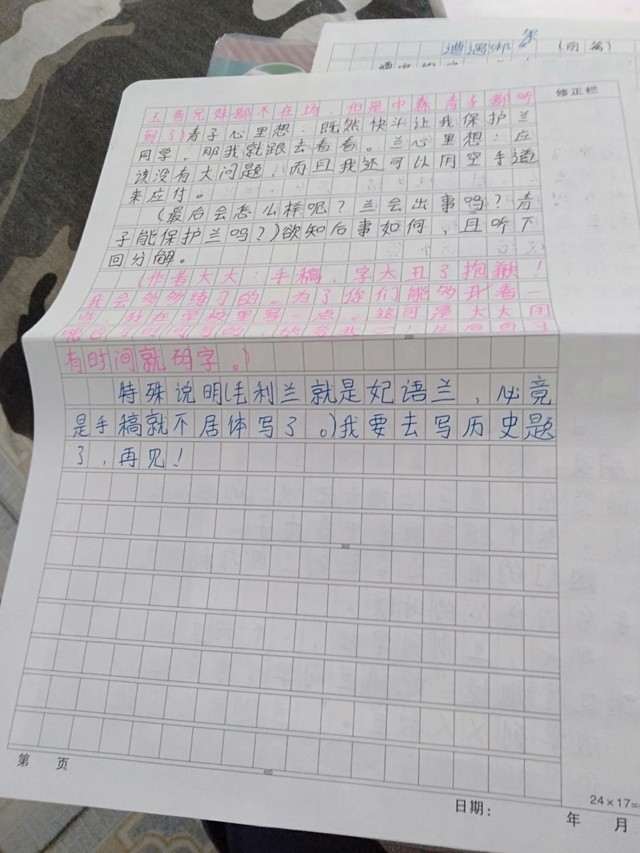 遭遇绑
案
(明篇)
修正栏
兄妹都不在场。但是中森青子都听
到了)青子心里想:既然快斗让我保护兰
同学,那我就跟去看看。兰心里想:应
该没有大问题,而且我还可以用空手道
来应付。
(最后会怎么样呢?兰会出事吗?青
子能保护兰吗?)欲知后事如何,且听下
回分解。
(作者大大:手稿,字太丑了抱歉!
我会多多练习的。为了你们能够开着一
有时间就码字。)
特殊说明(毛利兰就是妃语兰,必竟
是手稿就不居体写了。)我要去写历史题
了,再见!
300
第 页
400
日期: 年 月
24×17=